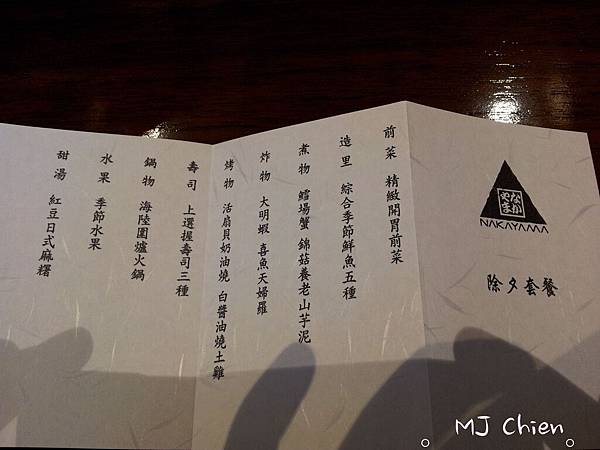 なか
やま
NAKAYAMA
除夕套餐
前菜 精緻開胃前菜
造里 綜合季節鮮魚五種
煮物 鱈場蟹 錦菇養老山芋泥
炸物 大明蝦 喜魚天婦羅
烤物 活扇貝奶油燒 白醬油燒土雞
壽司 上選握壽司三種
鍋物 海陸圍爐火鍋
水果 季節水果
甜湯 紅豆日式麻糬
MJ Chien